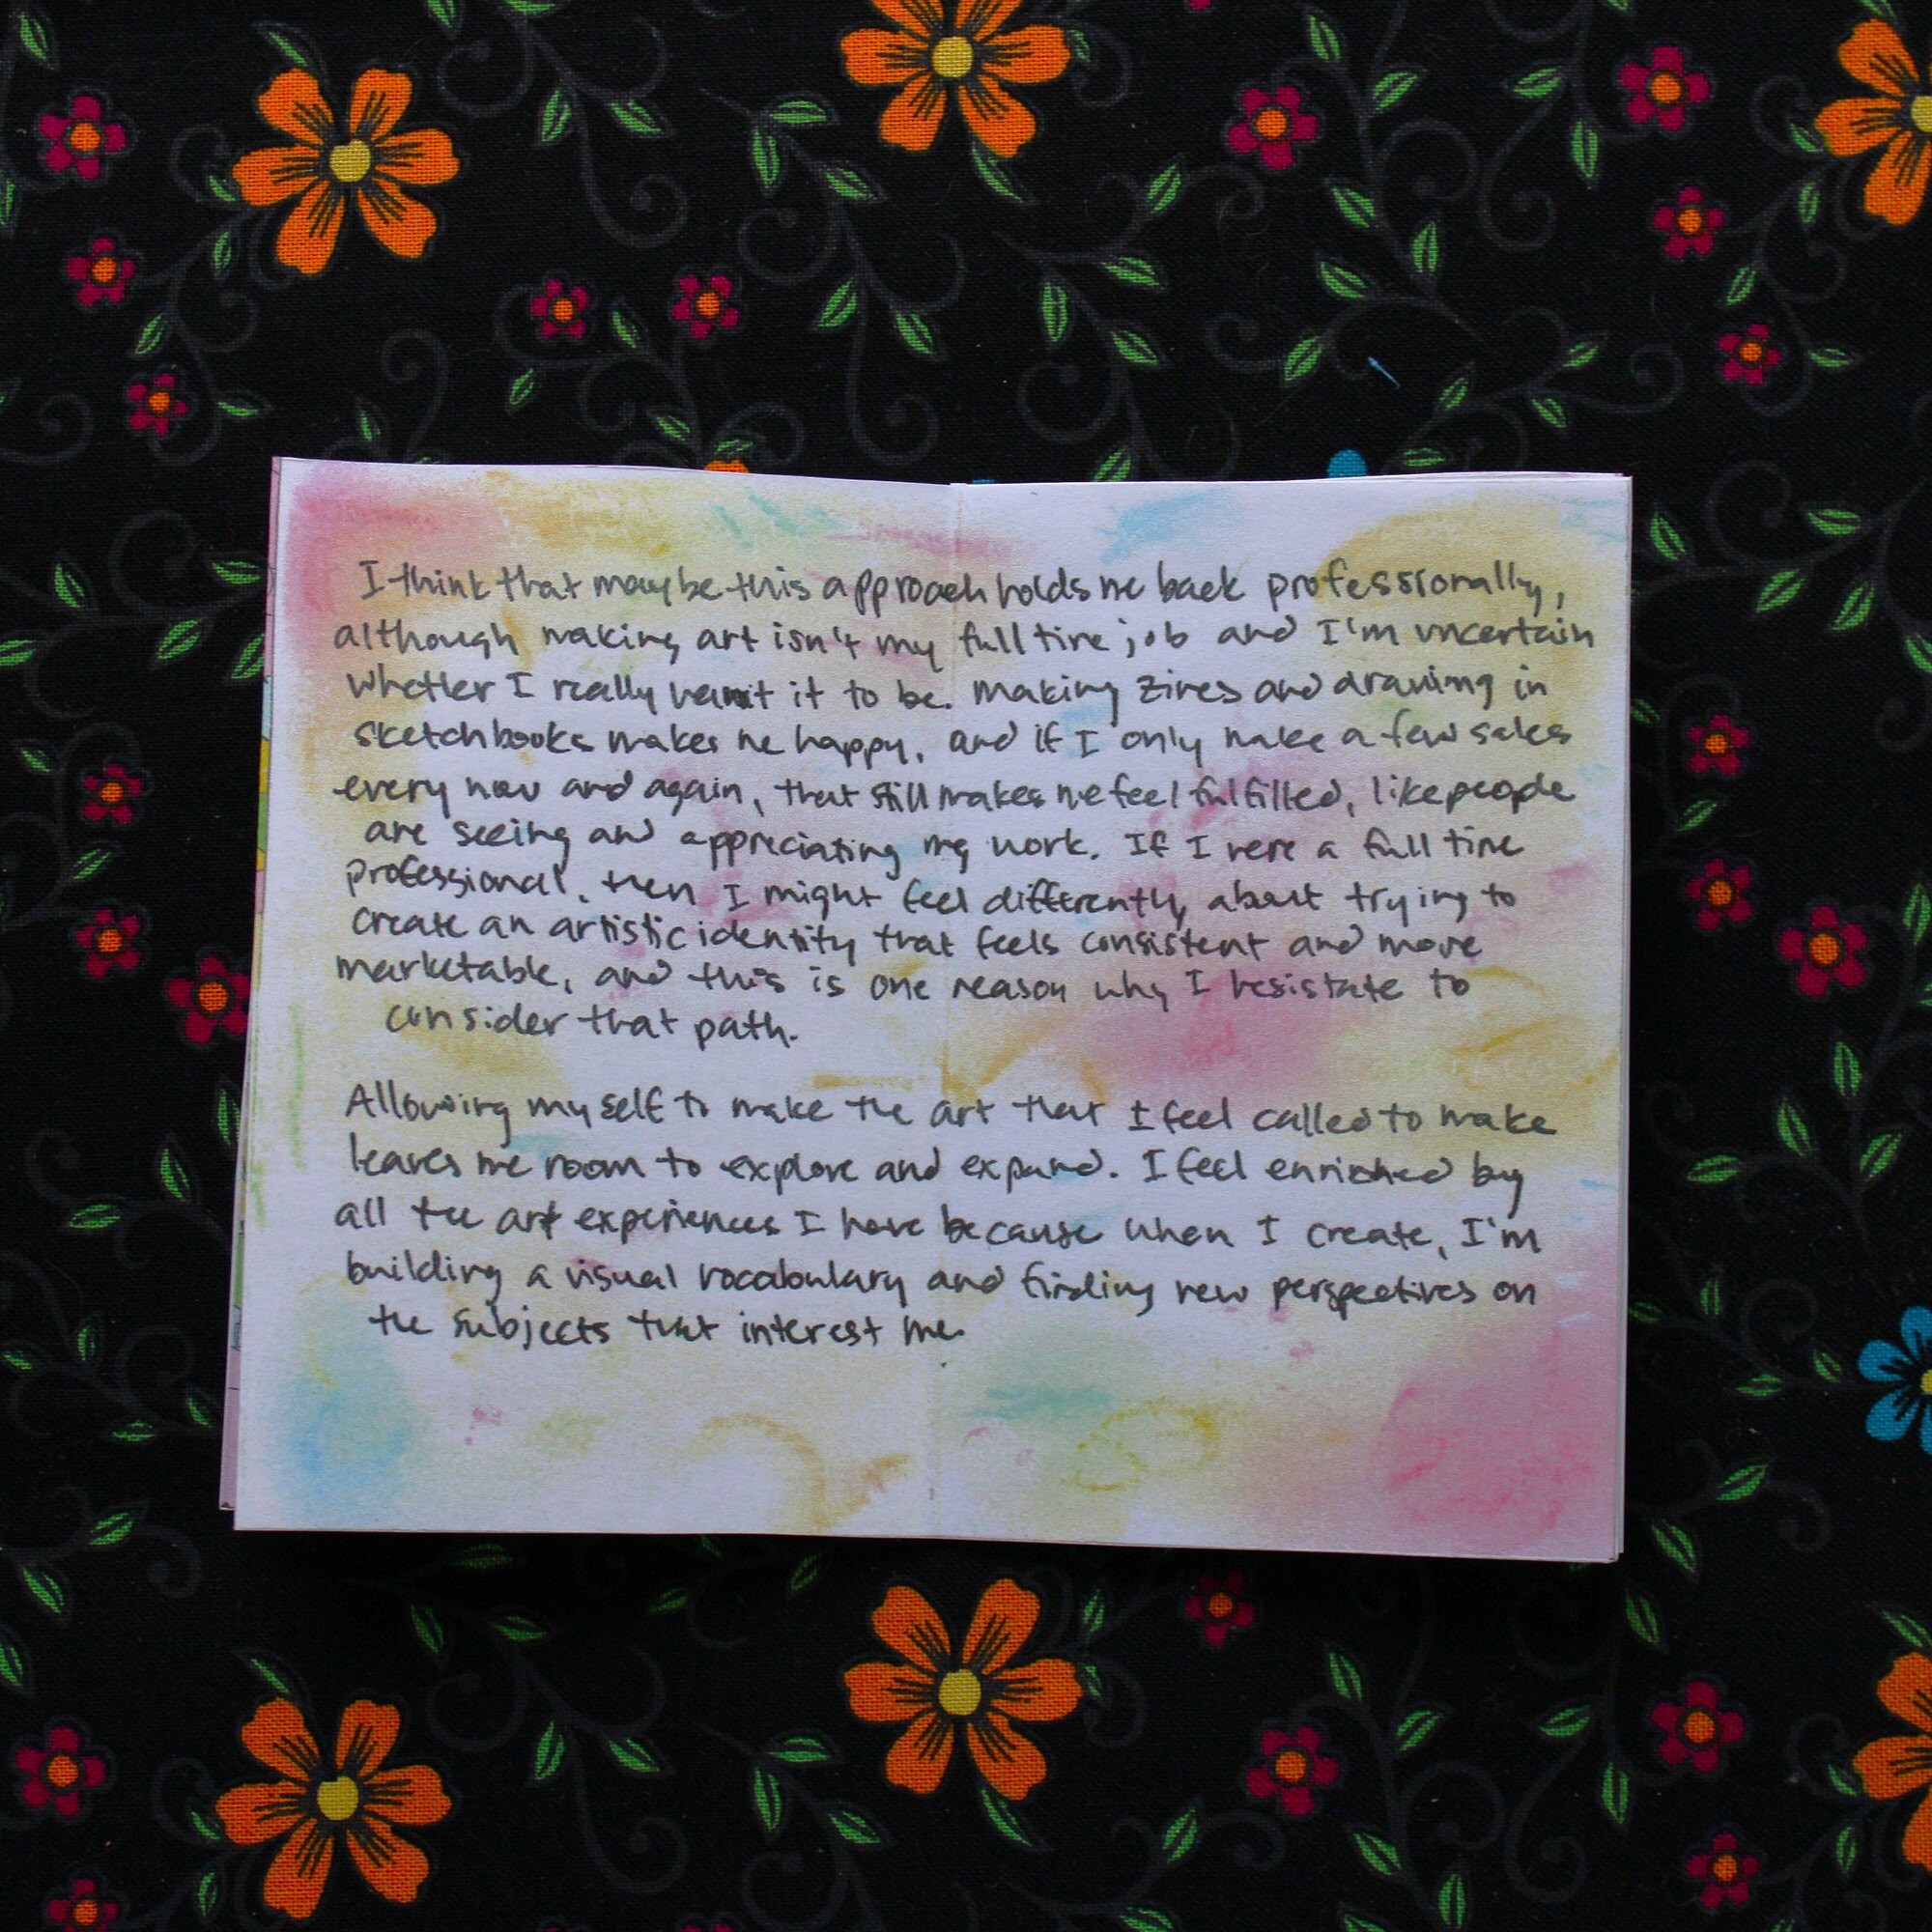 I think that maybe this approach holds me back professionally,
although making art isn't my full time job and I'm uncertain
whether I really want it to be. Making zines and drawing in
sketchbooks makes me happy, and if I only make a few sales
every now and again, that still makes me feel fulfilled, like people
are seeing and appreciating my work. If I were a full time
professional, then I might feel differently about trying to
create an artistic identity that feels consistent and more
marketable, and this is one reason why I hesistate to
consider that path.
Allowing myself to make the art that I feel called to make
leaves me room to explore and expand. I feel enriched by
all the art experiences I have because when I create, I'm
building a visual vocabulary and finding new perspectives on
the subjects that interest me.